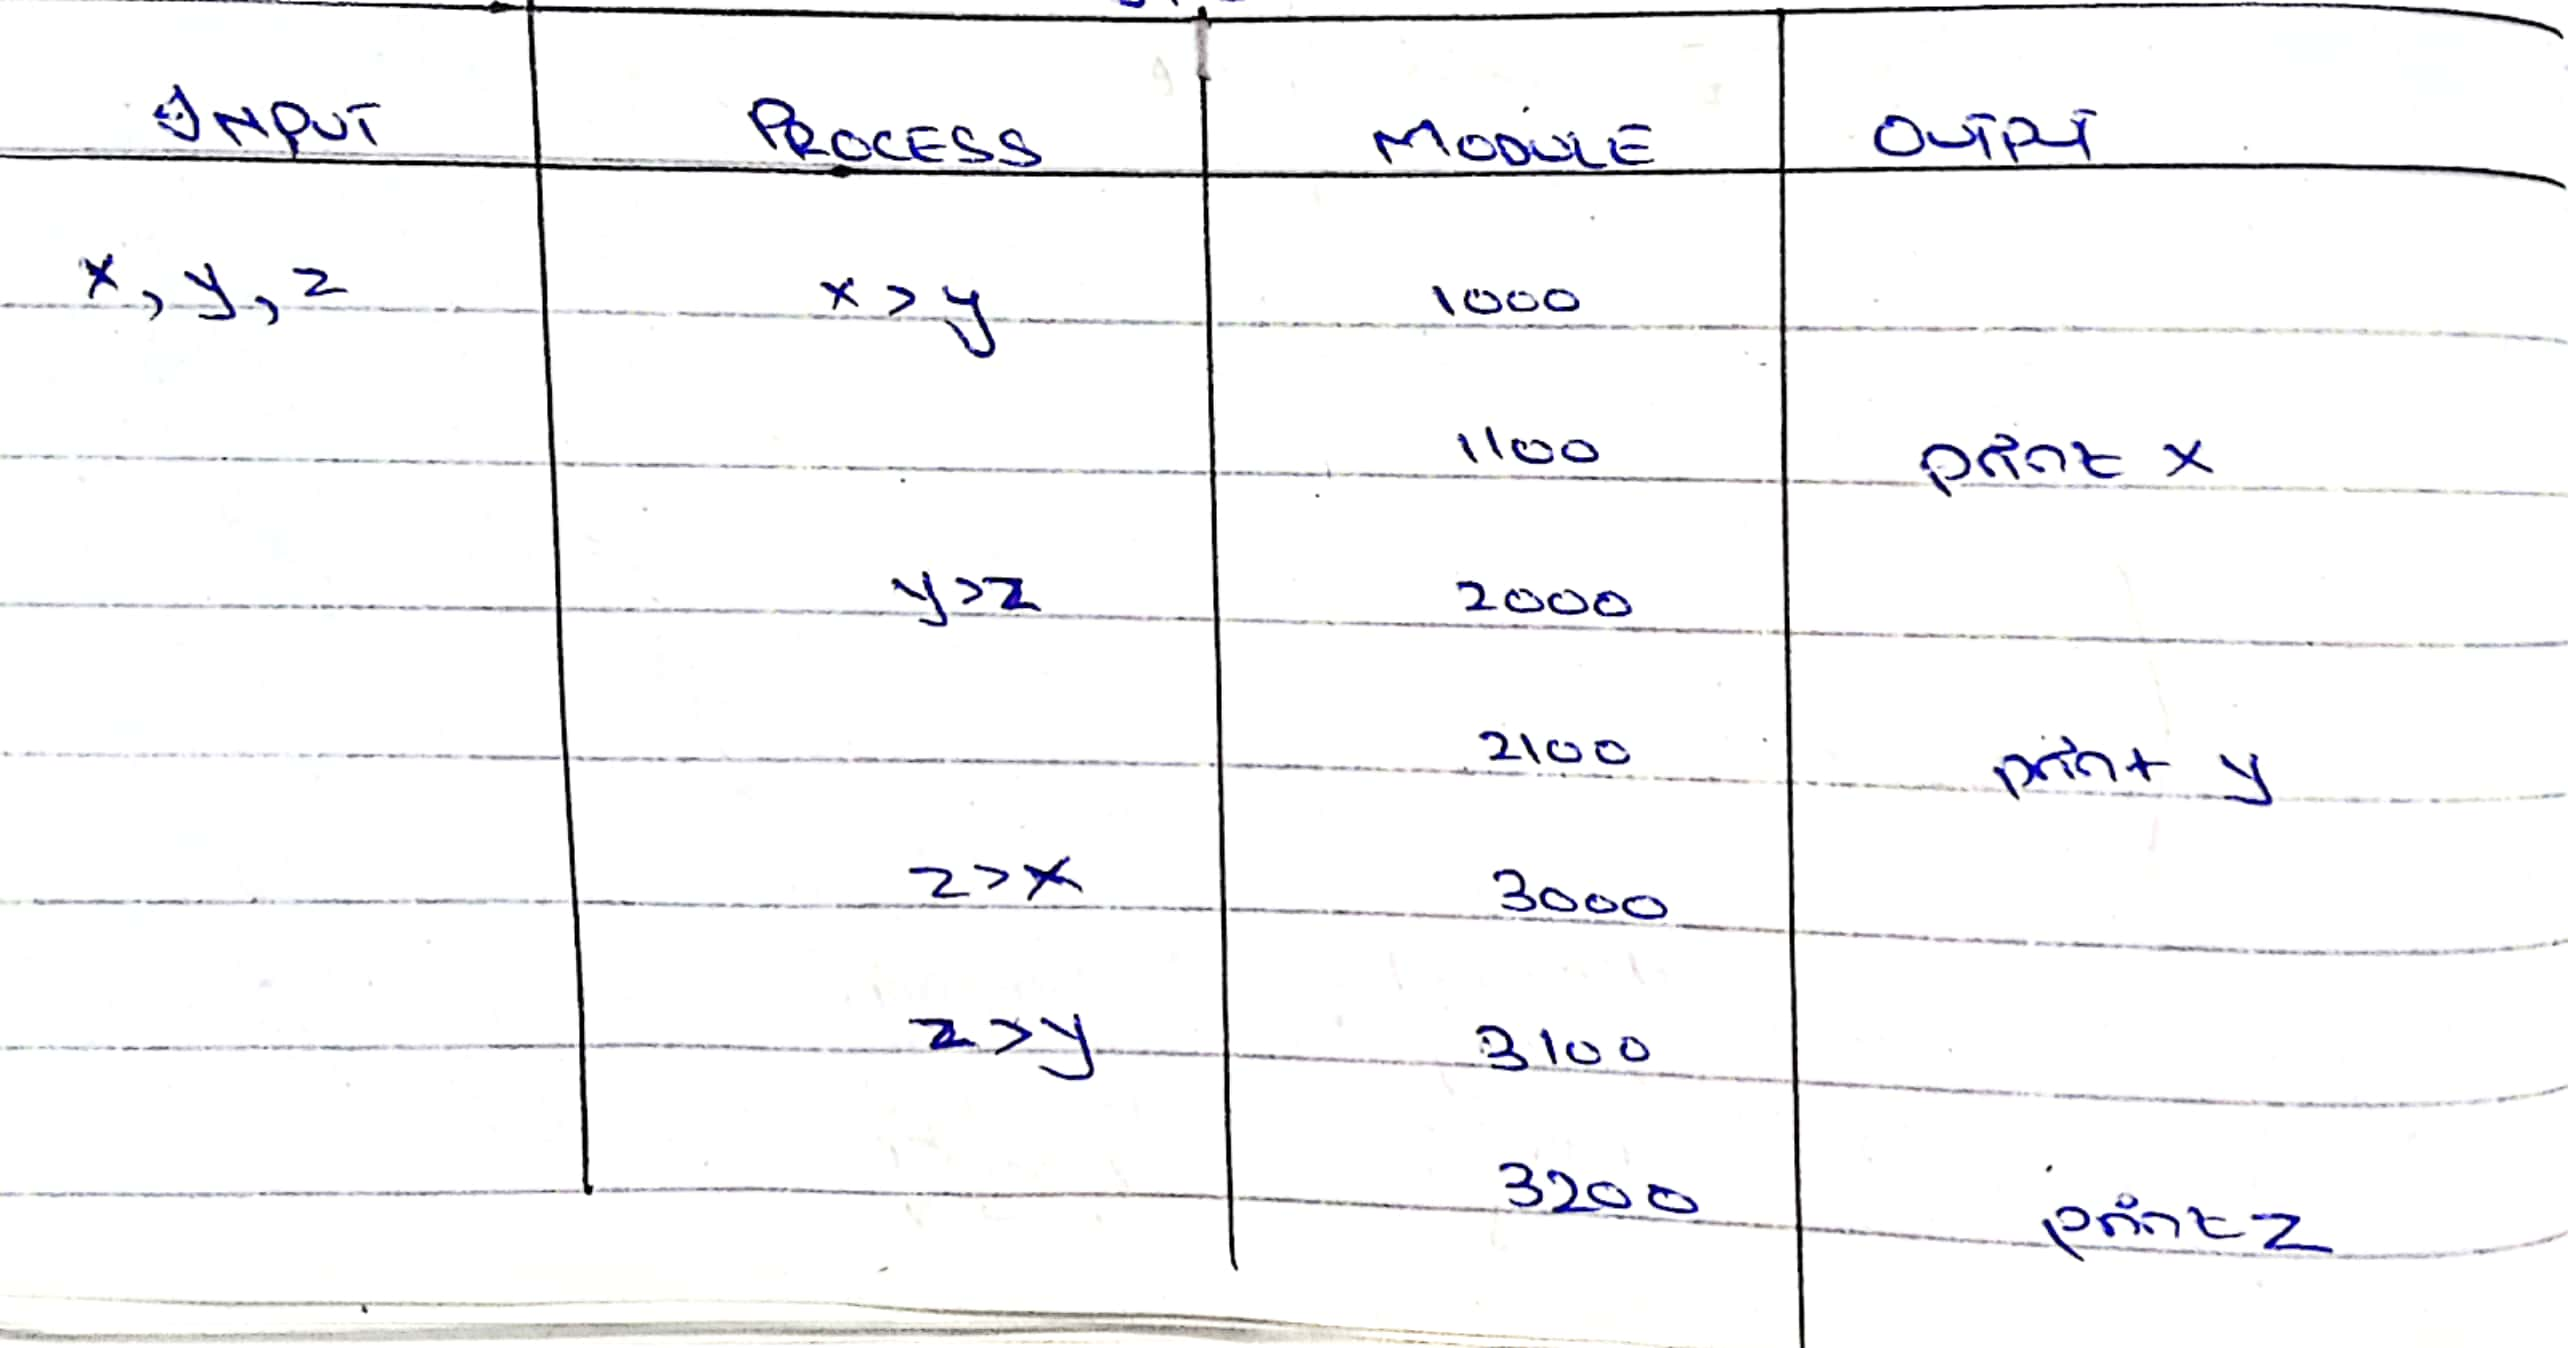 INPUT PROCESS MODULE OUTPUT
x, y, z x > y 1000
1100 print x
y>z 2000
2100 print y
z>x 3000
z>y 3100
3200 print z